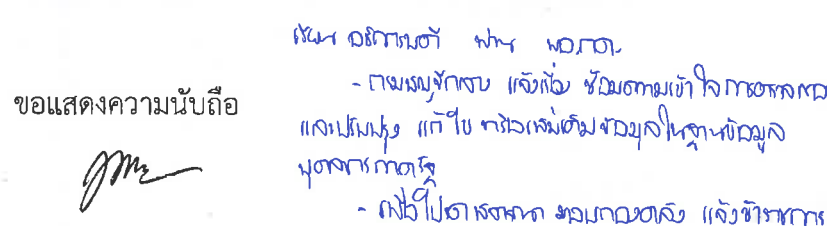 ขอแสดงความนับถือ
เรียน อธิการบดี ผ่าน
- กรมบัญชีกลาง แจ้งเรื่อง ซ้อมความเข้าใจการ
และปรับปรุง แก้ไข หรือเพิ่มเติมข้อมูลในฐานข้อมูล
บุคลากรภาครัฐ
- เพื่อโปรด มอบกองคลัง แจ้งข้าราชการ